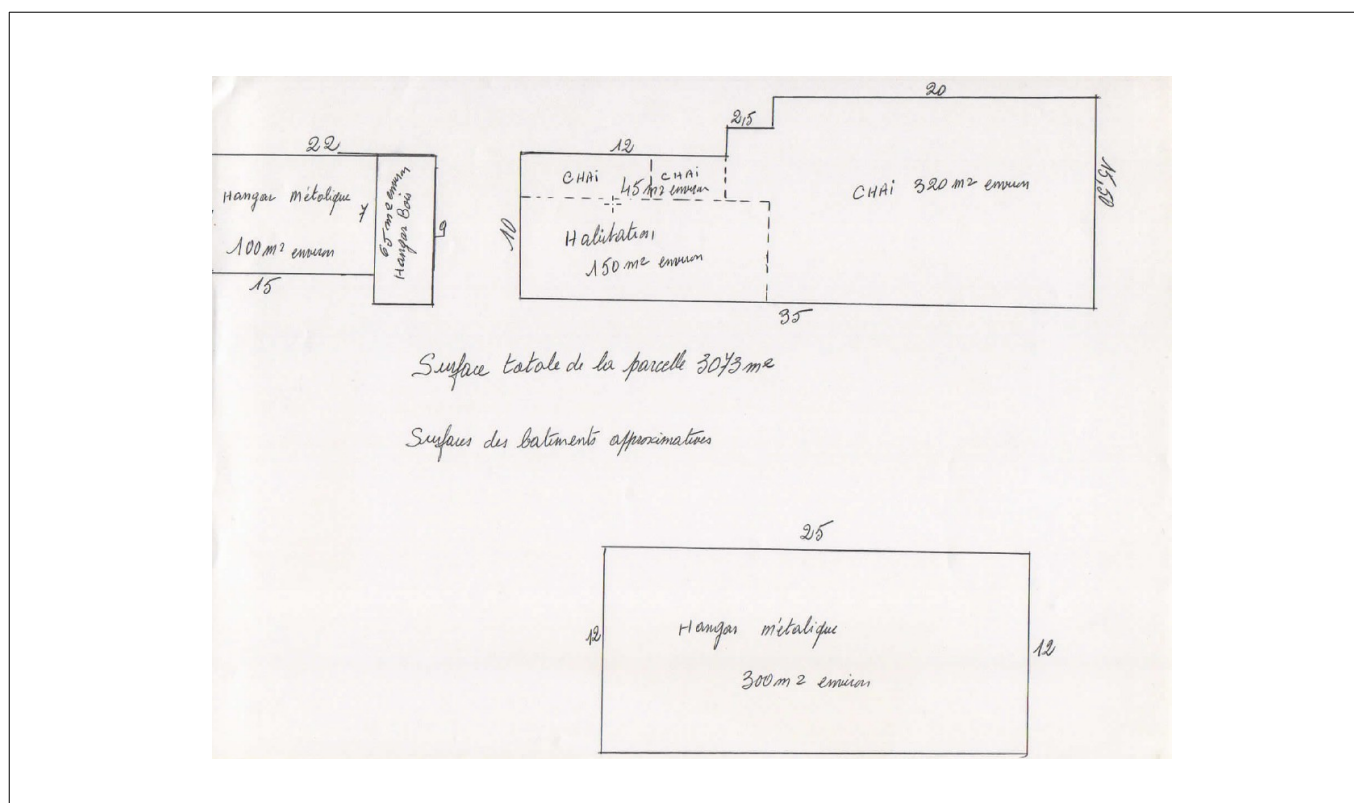 22
Hangar Métalique
7
100m² environ
15
65m2 environ
Hangar Bois
9
12
2,5
20
CHAi
CHAi
45m² environ
10
Habitation
150m² environ
CHAi 320m² environ
15,50
35
Surface totale de la parcelle 3073m2
Surfaces des batiments approximatives
25
12
Hangar métalique
300m2 environ
12